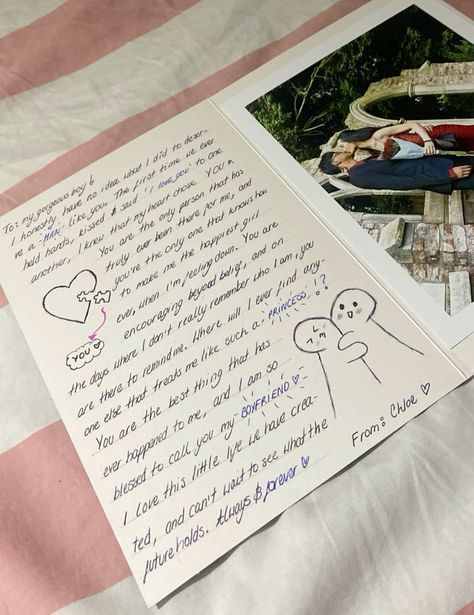 To: my gorgeous boy!
I honestly have no idea what I did to deser-
ve a -MAN- like you. The first time we ever
held hands, kissed & said 'i love you' to one
another, I knew that my heart chose YOU.
You are the only person that has
truly ever been there for me, and
you're the only one that knows how
to make me the happiest girl
ever, when I'm feeling down. You are
encouraging beyond belief, and on
the days where I don't really remember who I am, you
are there to remind me. Where will I ever find any-
one else that treats me like such a -PRINCESS- !?
You are the best thing that has
ever happened to me, and I am so
blessed to call you my -BOYFRIEND♡-
I love this little life we have crea-
ted, and can't wait to see what the
future holds. Always & forever ♡
YOU ♡
From: Chloe ♡